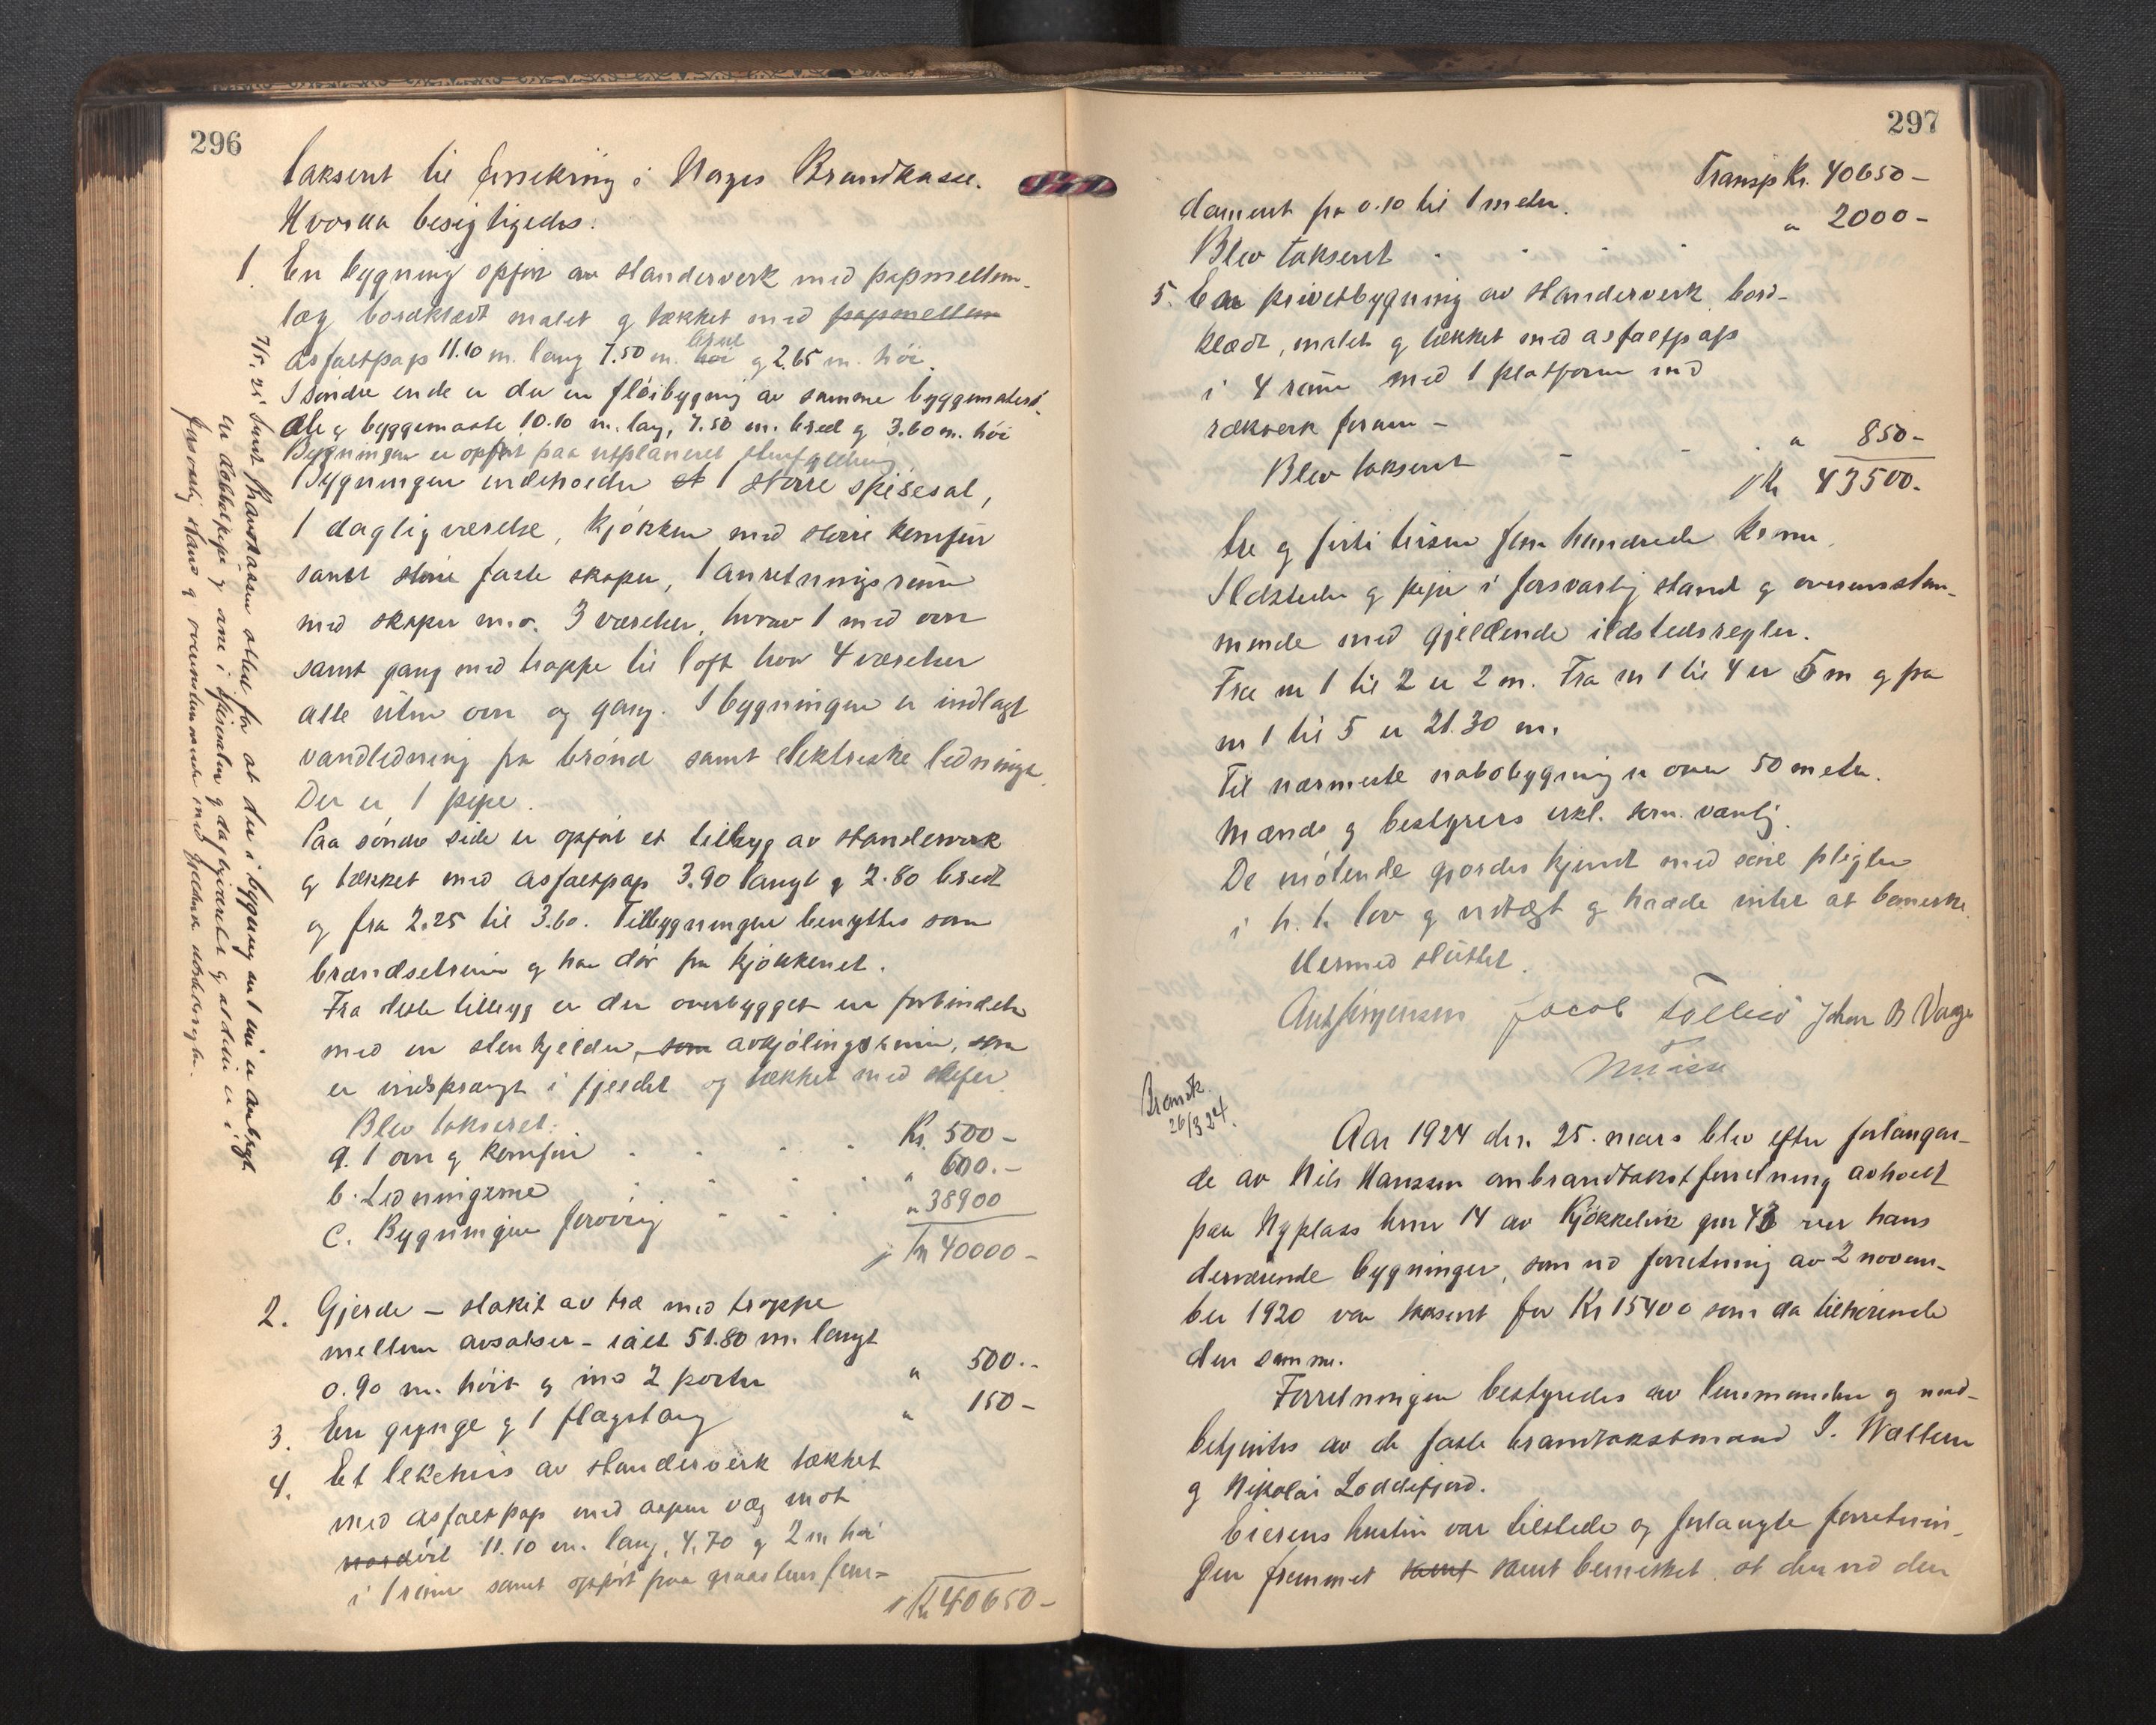 296
taksert til forsikring i Norges Brandkasse.
Hvorda besigtigedes:
1. En bygning opført av standerverk med papmellem-
læg bordklædt malet og tækket med papmellem
asfaltpap 11.10 m. lang 7.50 m. høi bred og 2.65 m. høi.
I søndre ende er der en fløibygning av samme byggemateri-
ale og byggemaate 10.10 m. lang, 7.50 m. bred og 3.60 m. høi
Bygningen er opført paa utplaneret
Bygningen indeholder et 1 større spisesal,
1 dagligværelse, kjøkken med større komfur
samt større faste skaper, 1 anretningsrum
med skaper m.v. 3 værelser, hvorav 1 med ovn
samt gang med trappe til loft hvor 4 værelser
alle uten ovn og gang. I bygningen er indlagt
vandledning fra brønd samt elektriske ledninger.
Der er 1 pipe.
Paa søndre side er opført et tilbyg av standerverk
og tækket med asfaltpap 3.90 langt og 2.80 bredt
og fra 2.25 til 3.60. Tilbygningen benyttes som
brændselsrum og har dør fra kjøkkenet.
Fra dette tilbygg er der overbygget en forbindelse
med en stenkjelder, som avkjølingsrum, som
er indsprængt i fjeldet og tækket med skifer
Blev taksert:
a. 1 ovn og komfur Kr. 500 -
b. Ledningerne " 600. -
c. Bygningen forøvrig " 38900
Kr 40000 -
2. Gjerde - stakit av træ med trappe
mellem avsatser - ialt 51.80 m. langt
0.90 m. høit og med 2 porter " 500. -
3. En gynge og 1 flagstang " 150 -
4. Et lekehus av standerverk tækket
med asfaltpap med aapen væg mot
nordøst 11.10 m. lang, 4.70 og 2 m høi
i 1 rum samt opført paa graastens fun-
Kr 40650 -
7/5. 25 samt Brandkassen attest for at der i bygning nr 1 nu er anbragt
en dobbelpipe og ovne i spisesalen og dagligværelset og at disse er i
forsvarlig stand og overenstemmende med gjældende ildstedsregler.
297
Transp Kr. 40650 -
dament fra 0.10 til 1 meter.
Blev taksert " 2000 -
5. En privetbygning av standerverk bord-
klædt, malet og tækket med asfaltpap
i 4 rum med 1 platform med
rækverk foran -
Blev taksert " 850 -
Kr 43500.
tre og firti tusen fem hundrede kroner.
Ildsteder og pipe i forsvarlig stand og overensstem-
mende med gjeldende ildstedsregler.
Fra nr 1 til 2 er 2 m. Fra nr 1 til 4 er 5 m og fra
nr 1 til 5 er 21.30 m.
Til nærmeste nabobygning er over 50 meter.
Mænds og bestyrers erkl. som vanlig.
De møtende gjordes kjent med sine pligter
i h. t. lov og vedtægt og hadde intet at bemerke.
Hermed sluttet.
Ant Jørgensen Jacob Johan B
Brandk.
26/3 24.
Aar 1924 den 25. mars blev efter forlangen-
de av Nils Hanssen ombrandtakstforretning avholdt
paa Nyplass brnr 14 av Kjøkkelvik gnr 43 over hans
derværende bygninger, som ved forretning av 2 novem-
ber 1920 var taksert for Kr 15400 som da tilhørende
den samme.
Forretningen bestyredes av lensmanden og med-
betjentes av de faste brandtakstmænd J.
og Nikolai Loddefjord.
Eierens hustru var tilstede og forlangte forretnin-
gen fremmet samt samt bemerket, at der ved den